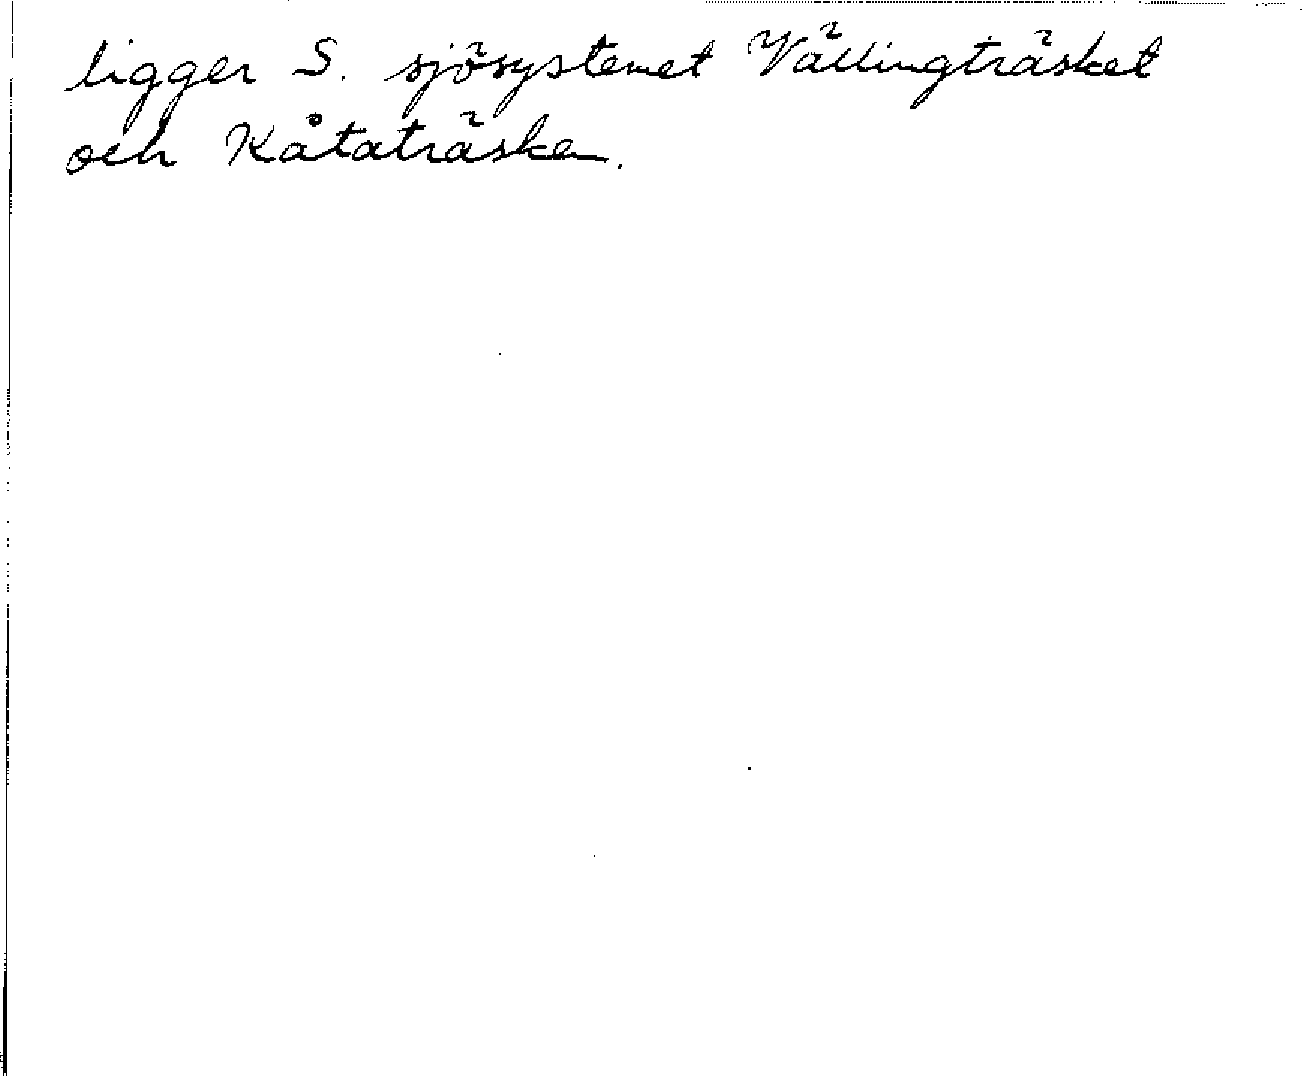 ligger S. sjösystemet Vällingträsket
och Kåtaträsken.